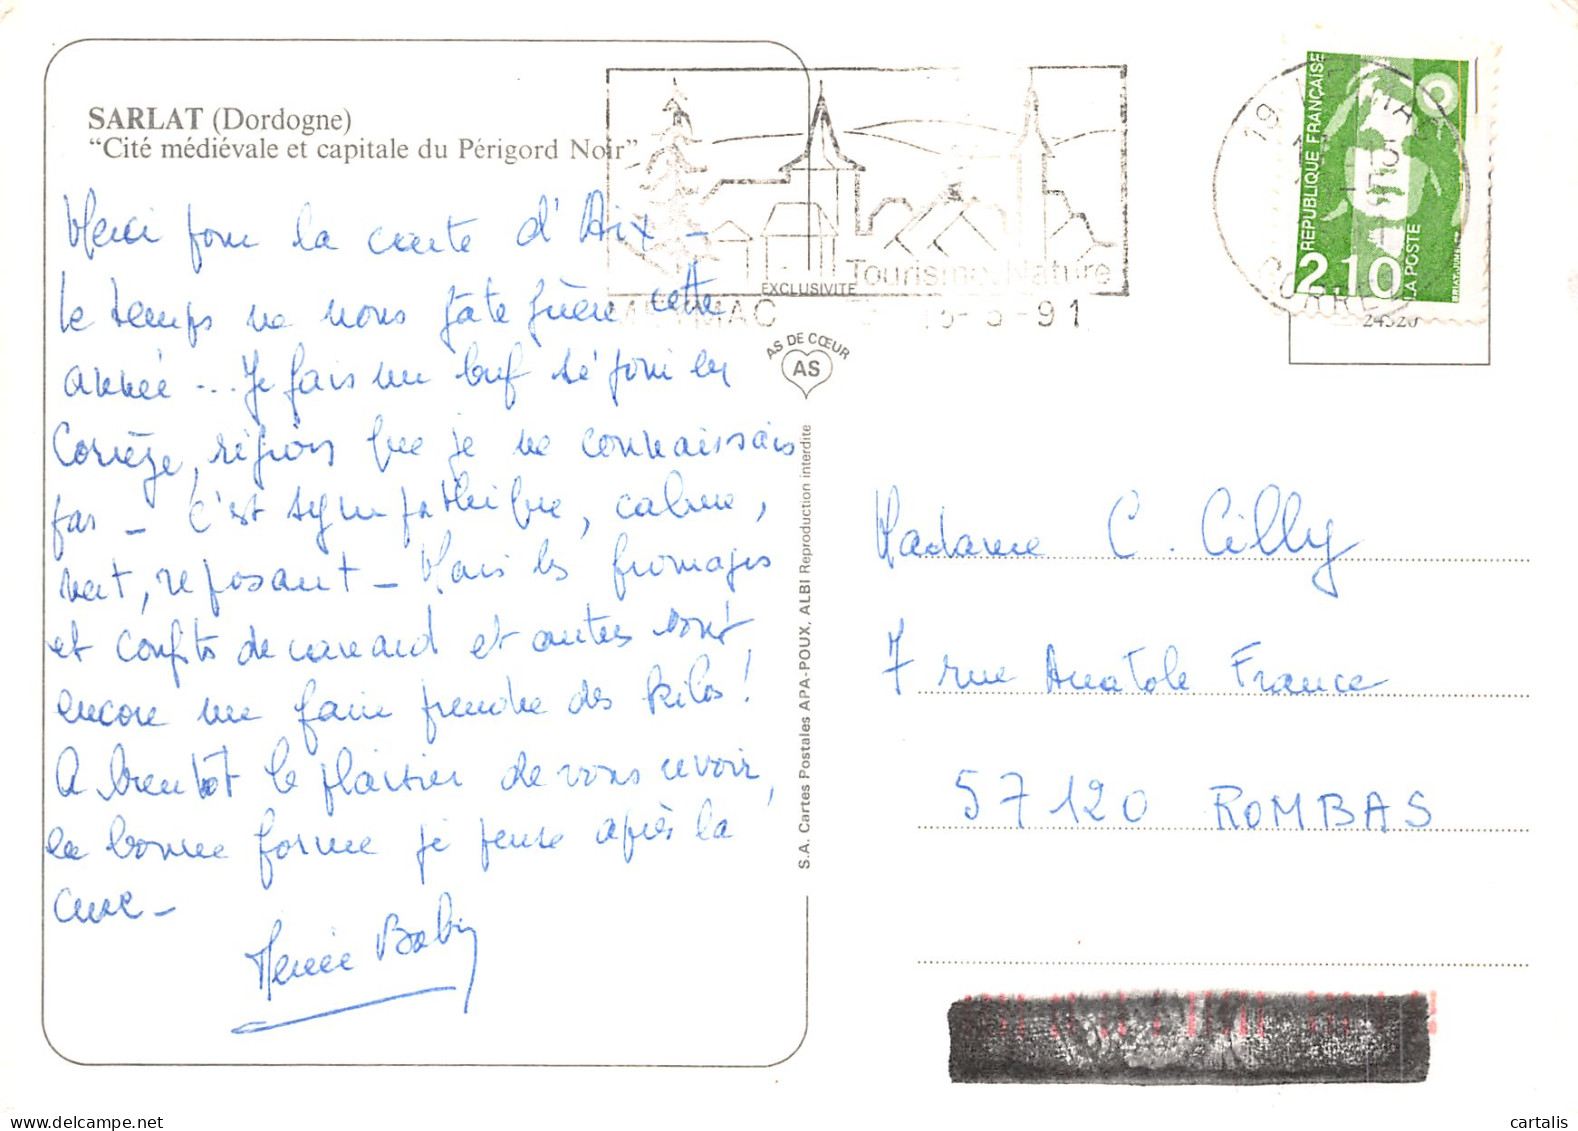 SARLAT (Dordogne)
"Cité médiévale et capitale du Périgord Noir"
Merci pour la carte d'Aix -
le temps ne nous gâte guère cette
année ... Je fais un bref séjour en
Corrèze, région que je ne connaissais
pas - C'est sympathique, calme,
vert, reposant - Mais les fromages
et confits de canard et autres vont
encore me faire prendre des kilos !
A bientôt le plaisir de vous revoir,
en bonne forme je pense après la
cure -
Tourisme Nature
MEYMAC
-91
EXCLUSIVITE
AS DE CŒUR
AS
S.A. Cartes Postales APA-POUX, ALBI Reproduction interdite
19
CORRE
REPUBLIQUE FRANÇAISE
2,10
LA POSTE
24520
Madame C. Cilly
7 rue Anatole France
57120 ROMBAS
cartalis